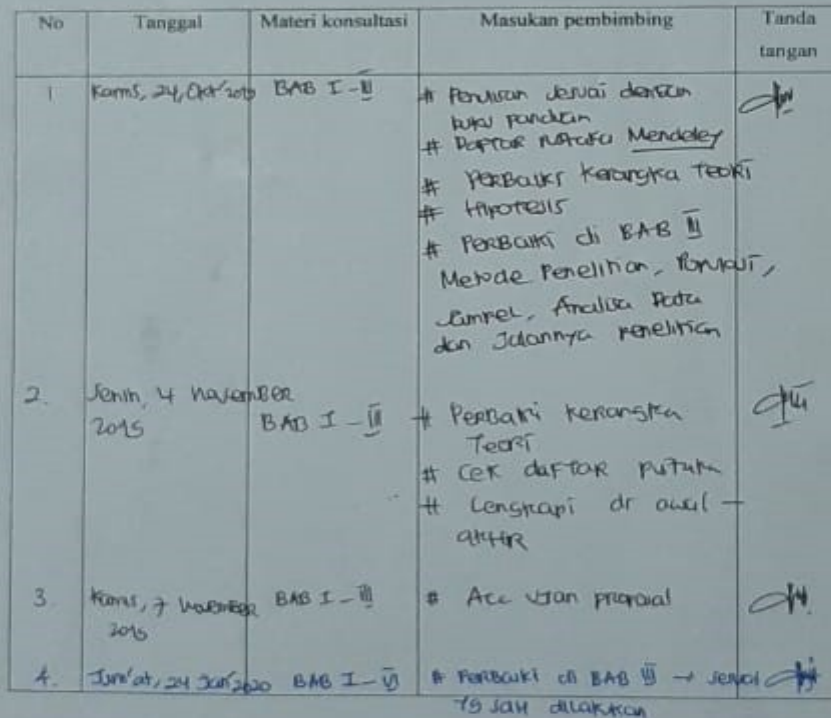 No Tanggal Materi konsultasi Masukan pembimbing Tanda
tangan
1 Kamis, 24, Okt' 2019 BAB I - III # Penulisan sesuai dengan
buku panduan
# Daftar pustaka Mendeley
# Perbaiki Kerangka Teori
# Hipotesis
# Perbaiki di BAB III
Metode Penelitian, Populasi,
Sampel, Analisa Data
dan Jalannya penelitian
2. Senin, 4 November
2019 BAB I - III # Perbaiki Kerangka
Teori
# Cek daftar pustaka
# Lengkapi dr awal -
akhir
3 Kamis, 7 November BAB I - III # Acc ujian proposal
2019
4. Jum'at, 24 Jan' 2020 BAB I - # Perbaiki di BAB III → sesuai
yg sdh dilakukan